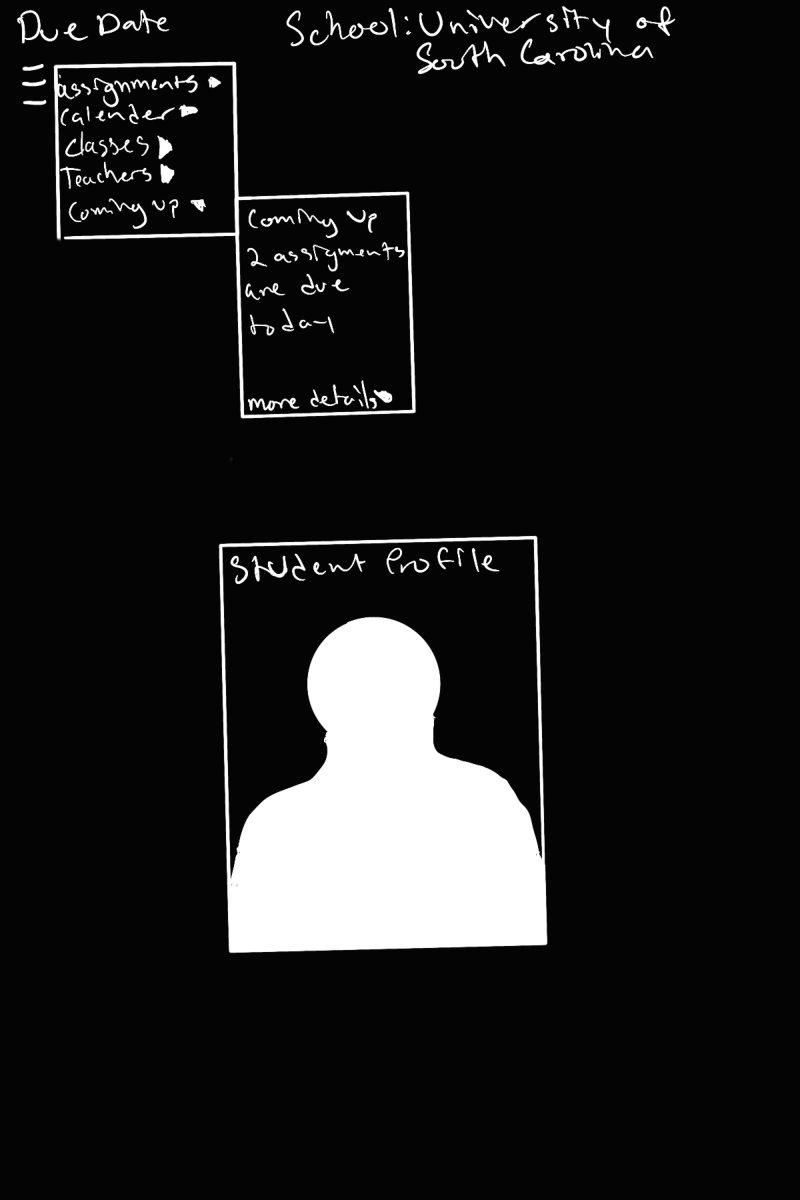 Due Date
School: University of
South Carolina
assignments
Calender
Classes
Teachers
Coming up
Coming up
2 assigments
are due
today
more details
Student Profile